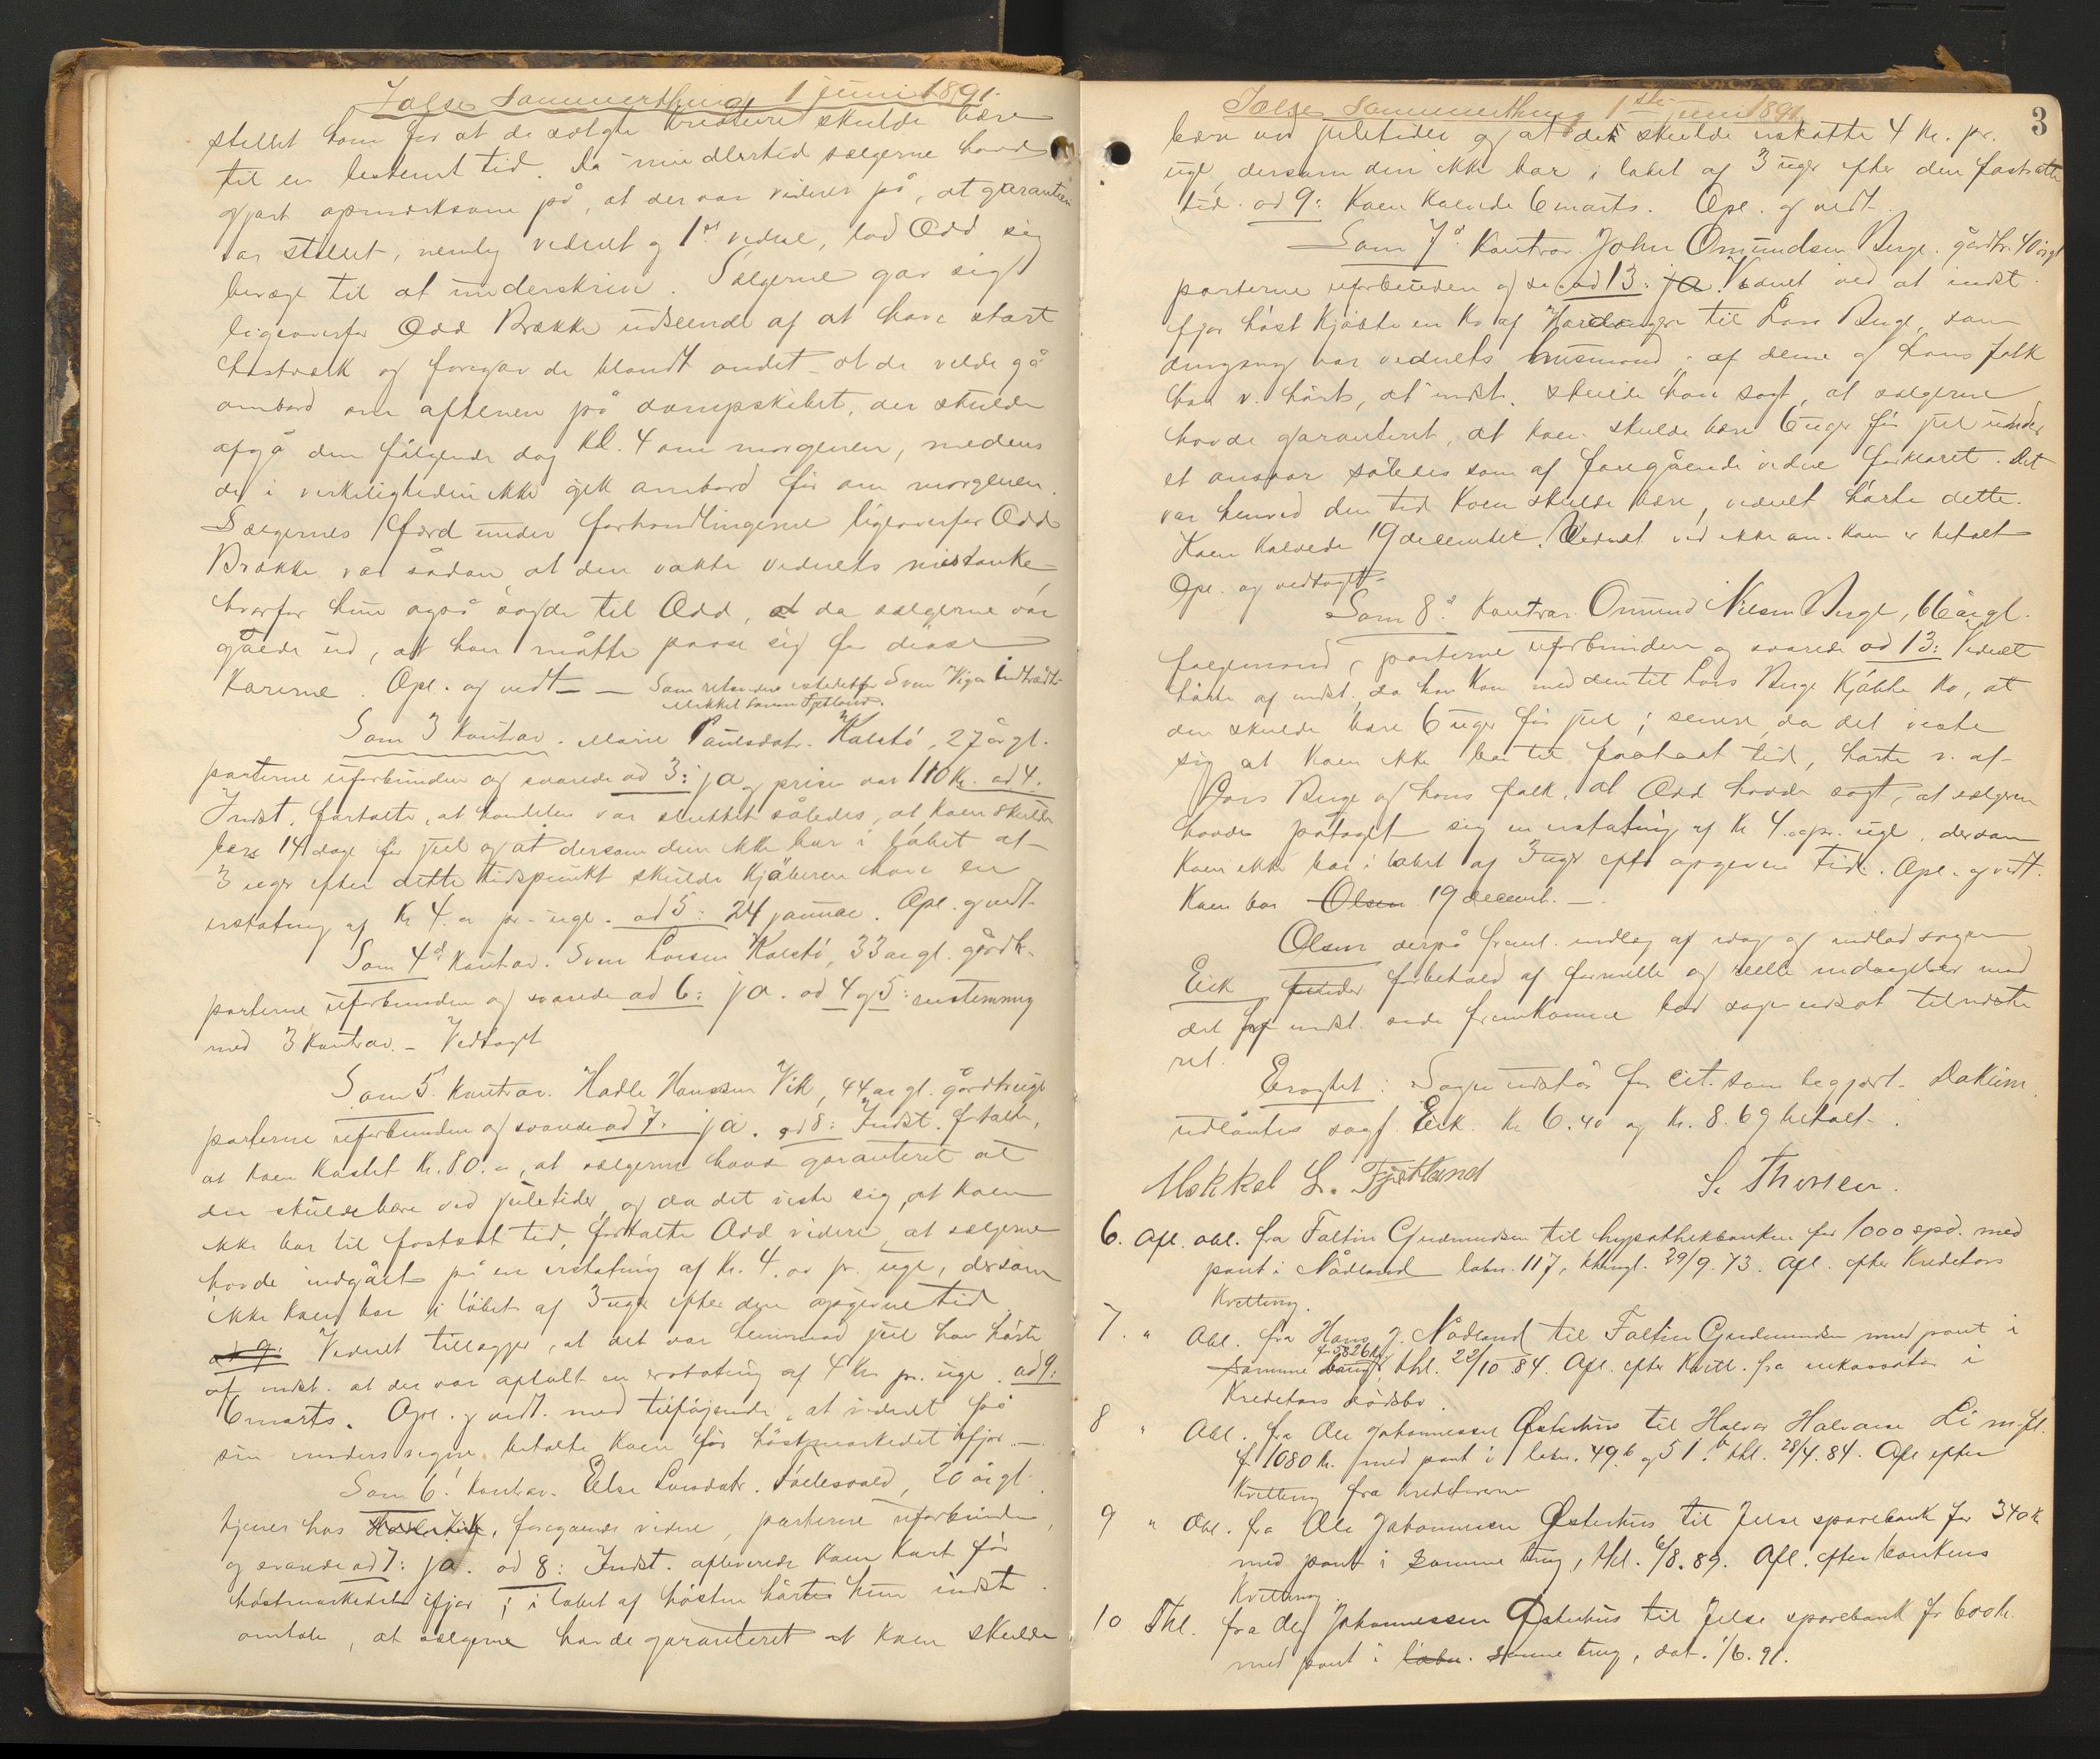 Jælsø Sommerthing 1 juni 1891.
stillet ham for at de solgte kreaturer skulde bære
til en bestemt tid. Da imidlertid sælgerne havde
gjort opmærksom på, at der var vidner på, at garantien
var stillet, nemlig vidnet og 1ste vidne, lod Odd sig
bevæge til at underskrive. Sælgerne gav sig
ligeoverfor Odd Brække udseende af at have stort
hastværk og foregav de blandt andet at de vilde gå
ombord om aftenen på dampskibet, der skulde
afgå den følgende dag kl. 4 om morgenen, medens
de i virkeligheden ikke gik ombord før om morgenen.
Sælgernes færd under forhandlingerne ligeoverfor Odd
Brække var sådan, at den vakte vidnets mistanke,
hvorfor hun også sagde til Odd, at da sælgerne var
gåede ud, at han måtte passe sig for disse
karerne. Opl. og vedt. — Som retsvidne istedetfor Sven Viga indtrådte
Mikkel Larsen Fjetland.
Som 3 kontrav. Marie Paulsdatr. Kalstø, 27 år gl.
parterne uforbunden og svarede ad 3: ja, prisen var 110 Kr. ad 4.
Indst. fortalte, at handelen var sluttet således, at koen skulde
bære 14 dage før jul og at dersom den ikke bar i løbet af
3 uger efter dette tidspunkt skulde kjøberen have en
erstatning af Kr. 4.00 pr. uge. ad 5: 24 januar. Opl. og vedt.
Som 4de kontrav. Sven Larsen Kalstø, 33 år gl. gårdb.
parterne uforbunden og svarede ad 6: ja. ad 4 og 5: enstemmig
med 3 kontrav. – Vedtaget
Som 5. kontrav. Hadle Hanssen Vik, 44 år gl. gårdbruger
parterne uforbunden og svarede ad 7. ja. ad 8: Indst. fortalte,
at koen kostet Kr. 80.00, at sælgerne havde garanteret at
den skulde bære ved juletider, og da det viste sig, at koen
ikke bar til fastsat tid, fortalte Odd videre, at sælgerne
havde indgået på en erstatning af Kr. 4.00 pr. uge, dersom
ikke koen bar i løbet af 3 uger efter den opgivne tid.
ad 9: Vidnet tillægger, at det var henimod jul han hørte
af indst. at der var aftalt en erstatning af 4 Kr. pr. uge. ad 9:
6 marts. Opl. og vedt. med tilføjende, at vidnet på
sin moders vegne betalte koen før høstmarkedet ifjor. —
Som 6. kontrav. Else Larsdatr. 20 år gl.
tjener hos Hadle Vik, foregående vidne, parterne uforbunden,
og svarede ad 7: ja. ad 8: Indst. afleverede koen kort før
høstmarkedet ifjor; i løbet af høsten hørte hun indst.
omtale, at sælgerne havde garanteret at koen skulde
3
Jælsø Sommerthing 1ste juni 1891.
bære ved juletider og at de skulde erstatte 4 Kr. pr.
uge, dersom den ikke bar i løbet af 3 uger efter den fastsatte
tid. ad 9: Koen kalvede 6 marts. Opl. og vedt.
Som 7de kontrav. John Omundsen Berge, gårdbr. 40 år gl.
parterne uforbunden og sv. ad 13: ja. Vidnet ved at indst.
ifjor høst kjøbte en ko af Hardanger til Lars Berge, som
dengang var vidnets husmand; af denne og hans folk
har v. hørt, at indst. skulde have sagt, at sælgerne
havde garanteret, at koen skulde bære 6 uger før jul under
et ansvar således som af foregående vidne forklaret. Det
var henved den tid koen skulde bære, vidnet hørte dette.
Koen kalvede 19 december. Vidnet ved ikke om koen er betalt
Opl. og vedtaget.
Som 8de kontrav. Omund Nilsen Berge, 66 år gl.
folgemand, parterne uforbunden og svarede ad 13: Vidnet
hørte af indst. da han kom med den til Lars Berge kjøbte ko, at
den skulde bære 6 uger før jul; senere, da det viste
sig at koen ikke bar til fastsat tid, hørte v. af
Lars Berge og hans folk, at Odd havde sagt, at sælgeren
havde påtaget sig en erstatning af Kr. 4.00 pr. uge, dersom
koen ikke bar i løbet af 3 uger efter opgiven tid. Opl. og vedt.
Koen bar Olsen 19 decemb. —
Olsen derpå freml. indlæg af idag og indlod sagen
Eick under forbehold af formelle og reelle indsigelser mod
det fra indst. side fremkomne bad sagen udsat til næste
ret.
Eragtet: Sagen udstår for cit. som begjært. Dokum.
udlåntes sagf. Eick. Kr. 6.40 og Kr. 8.69 betalt.
Mekkel L. Fjetland S. Thorsen.
6. Afl. obl. fra Foltin Gudmundsen til hypothekbanken for 1000 spd. med
pant i Nådland løbn. 117, thingl. 29/9.73. Afl. efter kreditors
kvittering.
7. " Obl. fra Hans J. Nådland til Foltin Gudmundsen med pant i
f. 5826 Kr.
samme brug, thl. 22/10 84. Afl. efter kvitt. fra inkassator i
kreditors dødsbo.
8 " Obl. fra Ole Johannessen Østerhus til Halvor Halvorsen Li m.fl.
f. 1080 Kr. med pant i løbn. 49b og 51b thl. 28/4.84. Afl efter
kvittering fra kreditorerne
9 " Obl. fra Ole Johannessen Østerhus til Jelse sparebank for 340 Kr.
med pant i samme brug, thl. 6/8.89. Afl. efter bankens
kvittering.
10 Thl. fra Ole Johannessen Østerhus til Jelse sparebank for 600 Kr.
med pant i løbn. samme brug, dat. 1/6.91.